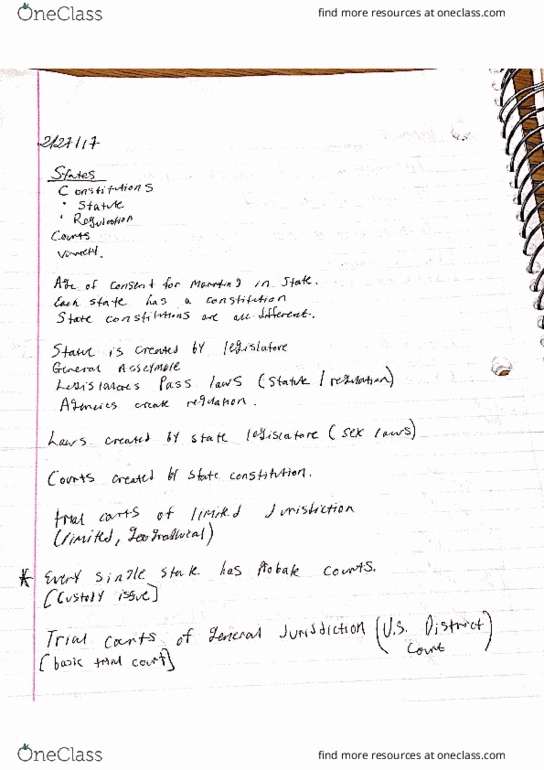 OneClass
find more resources at oneclass.com
2/27/17
States
Constitutions
• Statute
• Regulation
Courts
Age of consent for marrying in state.
Each state has a constitution
State constitutions are all different.
Statute is created by legislatore
General Assembly
Legislatures Pass laws (statute / regulation)
Agencies create regulation.
Laws created by state legislatore (sex laws)
Courts created by state constitution.
trial corts of limited Jurisdiction
(limited, geographical)
* Every single state has Probate courts.
[custody issue]
Trial corts of general Jurisdiction (U.S. District Court)
[basic trial court]
OneClass
find more resources at oneclass.com